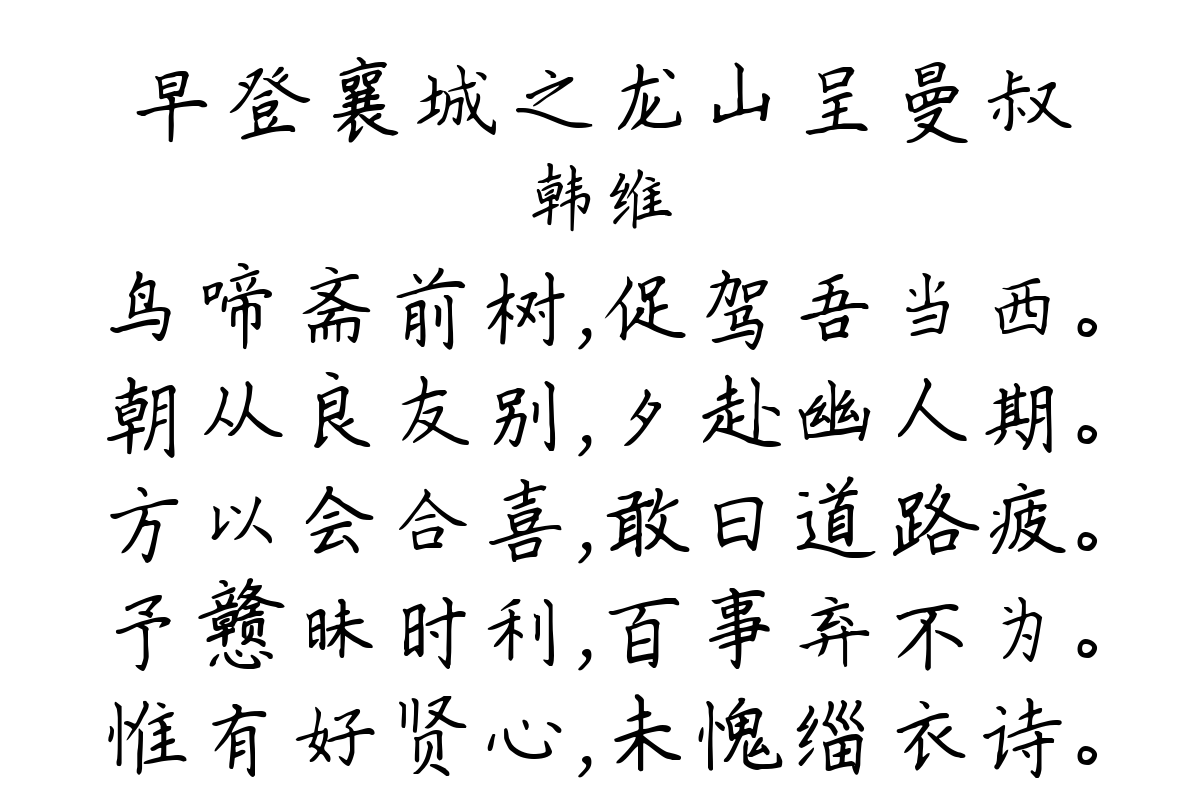 早登襄城之龙山呈曼叔
韩维
鸟啼斋前树,促驾吾当西。
朝从良友别,夕赴幽人期。
方以会合喜,敢曰道路疲。
予戆昧时利,百事弃不为。
惟有好贤心,未愧缁衣诗。